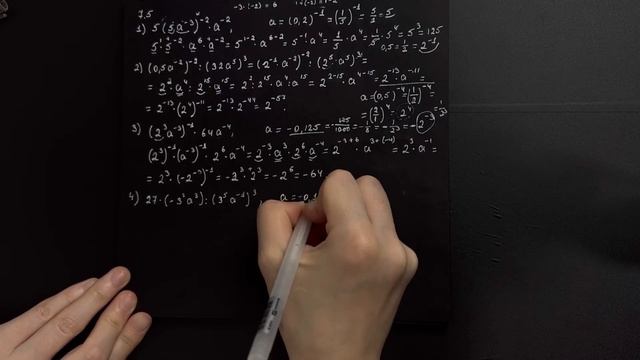 7.5
-3·(-2) = 6
1) 5(5a⁻³)⁻² · a⁻², a = (0,2)⁻¹ = (1/5)⁻¹ = 5/1 = 5
5¹ · 5⁻² · a⁶ · a⁻² = 5¹⁻² · a⁶⁻² = 5⁻¹ · a⁴ = 1/5 · a⁴ = 1/5 · 5⁴ = 5³ = 125
0,5 = 1/2 = 2⁻¹
2) (0,5a⁻²)⁻² : (32a⁵)³ = (2⁻¹ · a⁻²)⁻² : (2⁵ · a⁵)³ =
= 2² · a⁴ : 2¹⁵ · a¹⁵ = 2² : 2¹⁵ · a⁴ : a¹⁵ = 2²⁻¹⁵ · a⁴⁻¹⁵ = 2⁻¹³ · a⁻¹¹ =
= 2⁻¹³ · (2⁴)⁻¹¹ = 2⁻¹³ · 2⁻⁴⁴ = 2⁻⁵⁷
a = (0,5)⁻⁴ = (1/2)⁻⁴ =
= (2/1)⁴ = 2⁴
3) (2³a⁻³)⁻¹ · 64a⁻⁴, a = -0,125 = -125/1000 = -1/8 = -1/2³ = -2⁻³
(2³)⁻¹ · (a⁻³)⁻¹ · 2⁶ · a⁻⁴ = 2⁻³ · a³ · 2⁶ · a⁻⁴ = 2⁻³⁺⁶ · a³⁺⁽⁻⁴⁾ = 2³ · a⁻¹ =
= 2³ · (-2⁻³)⁻¹ = -2³ · 2³ = -2⁶ = -64
4) 27 · (-3³a³) : (3⁵a⁻¹)³, a = -0,